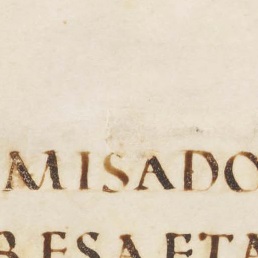 MISADO
RESAETA